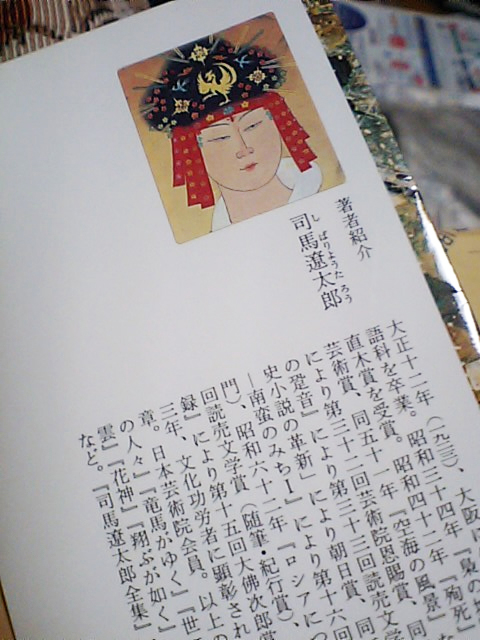 著者紹介
しばりょうたろう
司馬遼太郎
大正十二年（一九二三）、大阪に
語科を卒業。昭和三十四年『梟の
直木賞を受賞。昭和四十二年『殉死』
芸術賞、同五十一年『空海の風景』な
により第三十二回芸術院恩賜賞、同
の跫音』により第三十三回読売文学
史小説の革新」により朝日賞、同
―南蛮のみちⅠ』により第十六
門）、昭和六十二年『ロシアに
回読売文学賞（随筆・紀行賞）、
録』により第十五回大佛次郎賞
三年、文化功労者に顕彰され
章。日本芸術院会員。以上の
の人々』『竜馬がゆく』『世
雲』『花神』『翔ぶが如く』
など。『司馬遼太郎全集』